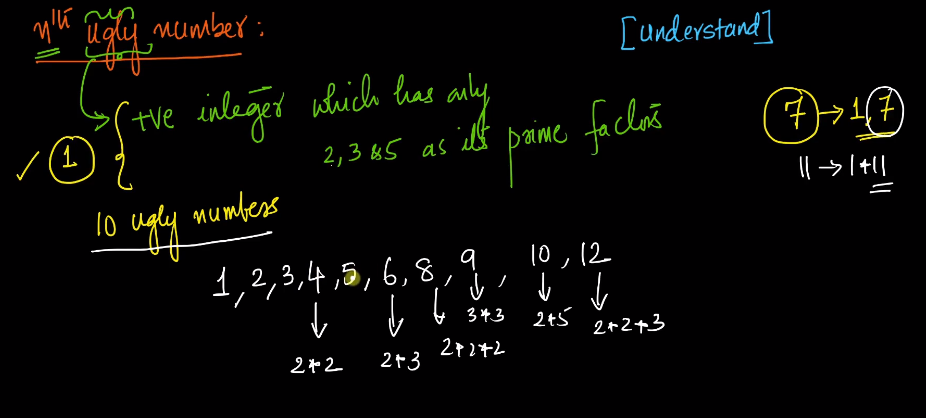 nth ugly number :
[understand]
+ve integer which has only
2, 3 & 5 as its prime factors
1
7 → 1, 7
11 → 1*11
10 ugly numbers
1, 2, 3, 4, 5, 6, 8, 9, 10, 12
2*2 2*3 2*2*2 3*3 2*5 2*2*3